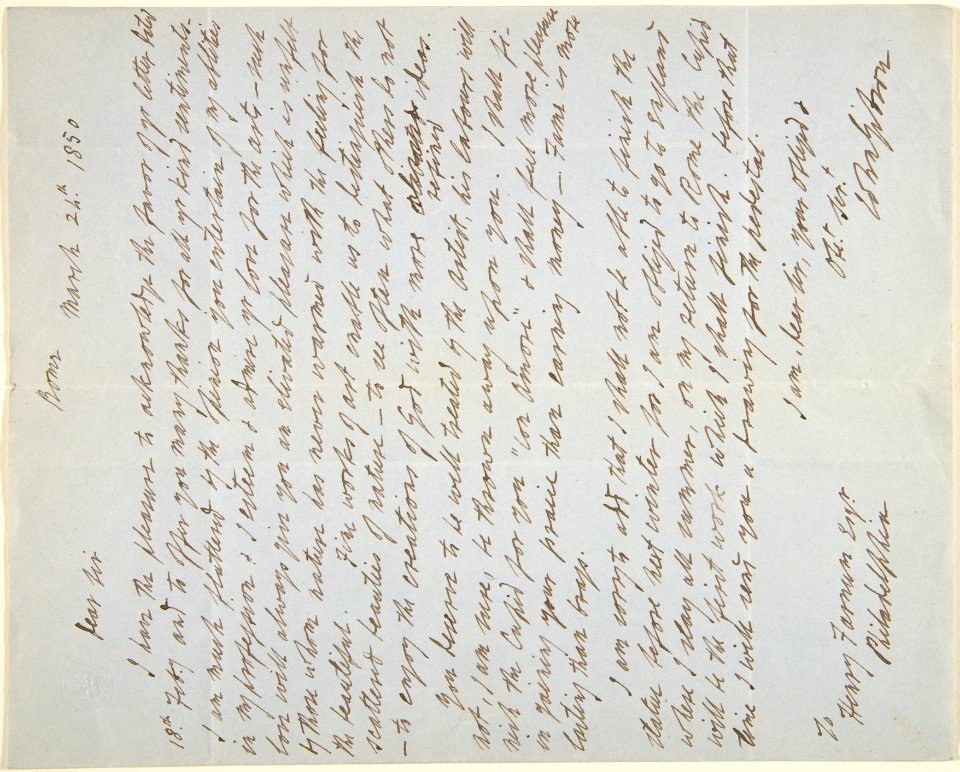 Rome March 24.th 1850
Dear Sir
I have the pleasure to acknowledge the favor of yr letter dated
18.th Feb.y and to offer you many thanks for all yr kind sentiments.
I am much flattered by the opinion you entertain of my abilities
in my profession. I esteem & admire yr love for the arts – such
love will always give you an elivated pleasure which is unfelt
by those whom nature has never warmed with the feeling for
the beautiful. Fine works of art enable us to distinguish the
scattered beauties of nature – to see often what others do not
– to enjoy the creations of God with more
refined ideas.
You deserve to be well treated by the Artist, his labours will
not, I am sure, be thrown away upon you. I shall fi-
nish the Cupid for you "con Amore" & shall feel more pleasure
in gaining your praise than earning money – Fame is more
lasting than brass.
I am sorry to add that I shall not be able to finish the
statue before next winter for I am obliged to go to England
where I stay all summer, on my return to Rome the Cupid
will be the first work which I shall finish. Before that
time I will send you a drawing for the pedestal.
I am, dear Sir, your obliged &
Ob.t Ser.t
John Gibson
To
Henry Farnum Esqr
Philadelphia